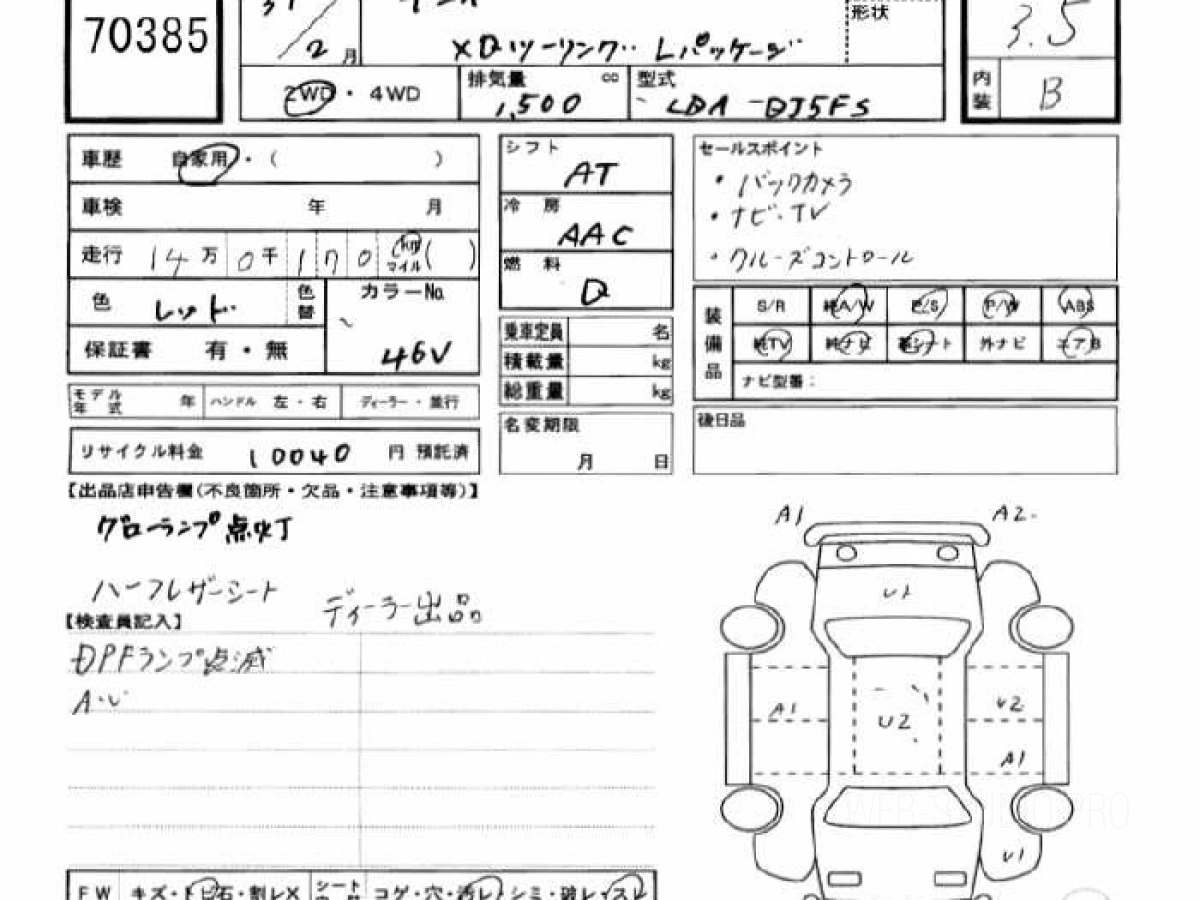 70385
2 月
形状
XDツーリング Lパッケージ
3.5
2WD・4WD
排気量 cc
1,500
型式
LDA-DJ5FS
内装 B
車歴 自家用・( )
車検 年 月
走行 14万0千170 km マイル( )
色 レッド 色替
カラーNo.
46V
保証書 有・無
モデル年式 年 ハンドル 左・右 ディーラー・並行
リサイクル料金 10040 円 預託済
シフト
AT
冷房
AAC
燃料
D
乗車定員 名
積載量 kg
総重量 kg
名変期限
月 日
セールスポイント
・バックカメラ
・ナビ・TV
・クルーズコントロール
装備品
S/R 純A/W P/S P/W ABS
純TV 純ナビ 革シート 外ナビ エアB
ナビ型番:
後日品
【出品店申告欄(不良箇所・欠品・注意事項等)】
グローランプ点灯
ハーフレザーシート
ディーラー出品
【検査員記入】
DPFランプ点滅
A・U
A1 A2
U1
A1 U2 U2
A1
U1
FW キズ・トビ石・割レX シート コゲ・穴・汚レ・シミ・破レ・スレ